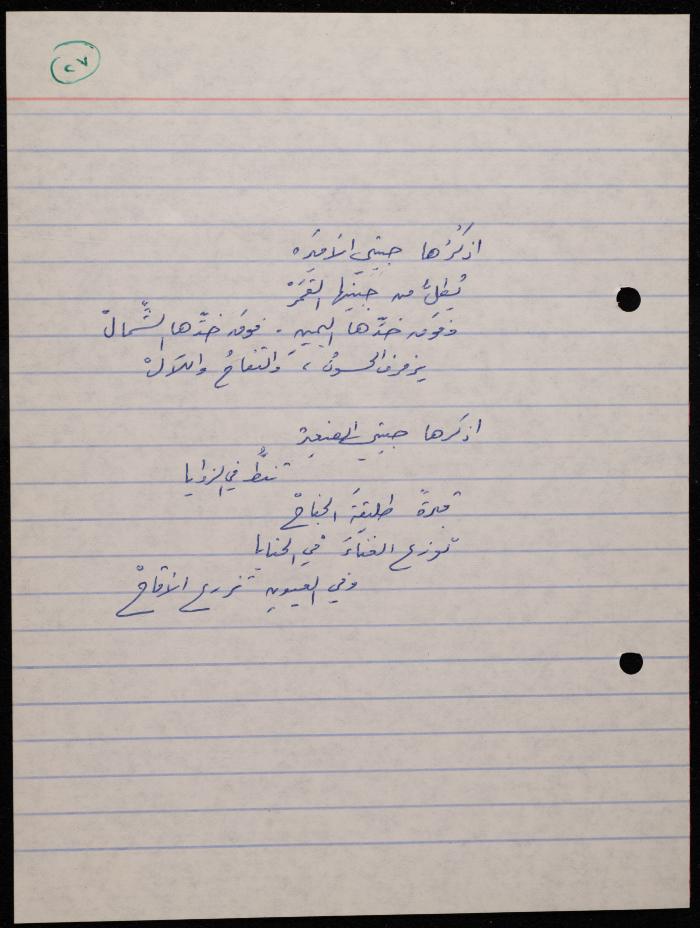 ٢٧
اذكُرُها حبيبتي الأميرَه
يُطِلُّ من جَبينِها القَمَرْ
وفَوقَ خدِّها اليمين . فوقَ خدِّها الشِّمالْ
يزفزف الحسونُ ، والتفاحُ والتلالْ
اذكرها حبيبتي الصغيرة
تنطُّ في الزوايا
قبرةً طليقةَ الجناحْ
توزع الغناءَ في الحنايا
وفي العيون تزرع الأقاحْ